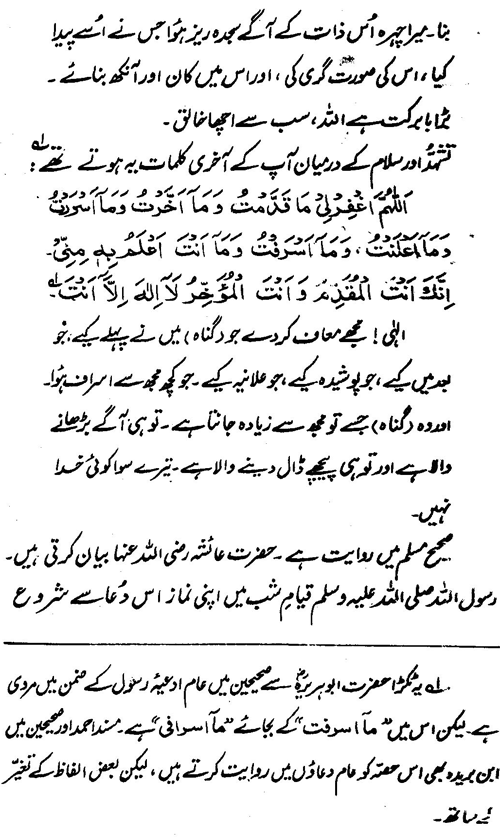 بنا۔ میرا چہرہ اُس ذات کے آگے سجدہ ریز ہُوا جس نے اُسے پیدا
کیا، اس کی صورت گری کی، اور اس میں کان اور آنکھ بنائے۔
بڑا بابرکت ہے اللہ، سب سے اچھا خالق۔
تشہّد اور سلام کے درمیان آپ کے آخری کلمات یہ ہوتے تھے؂۱ :
اَللّٰهُمَّ اغْفِرْ لِيْ مَا قَدَّمْتُ وَمَآ اَخَّرْتُ وَمَآ اَسْرَرْتُ
وَمَآ اَعْلَنْتُ، وَمَآ اَسْرَفْتُ وَمَآ اَنْتَ اَعْلَمُ بِهٖ مِنِّيْ۔
اِنَّكَ اَنْتَ الْمُقَدِّمُ وَ اَنْتَ الْمُؤَخِّرُ لَآ اِلٰهَ اِلَّآ اَنْتَ؂۱۔
الٰہی! مجھے معاف کر دے جو (گناہ) میں نے پہلے کیے، جو
بعد میں کیے، جو پوشیدہ کیے، جو علانیہ کیے۔ جو کچھ مجھ سے اسراف ہُوا۔
اور وہ (گناہ) جسے تو مجھ سے زیادہ جانتا ہے۔ تو ہی آگے بڑھانے
والا ہے اور تو ہی پیچھے ڈال دینے والا ہے۔ تیرے سوا کوئی خدا
نہیں۔
صحیح مسلم میں روایت ہے۔ حضرت عائشہ رضی اللہ عنہا بیان کرتی ہیں۔
رسول اللہ صلی اللہ علیہ وسلم قیامِ شب میں اپنی نماز اس دُعا سے شروع
؂۱ یہ ٹکڑا حضرت ابوہریرہؓ سے صحیحین میں عام ادعیۂ رسول کے ضمن میں مروی
ہے۔ لیکن اس میں "مآ اسرفت" کے بجائے "مآ اسرافی" ہے۔ مسند احمد اور صحیحین میں
ابن بریدہ بھی اس حصّہ کو عام دعاؤں میں روایت کرتے ہیں، لیکن بعض الفاظ کے تغیّر
کے ساتھ۔